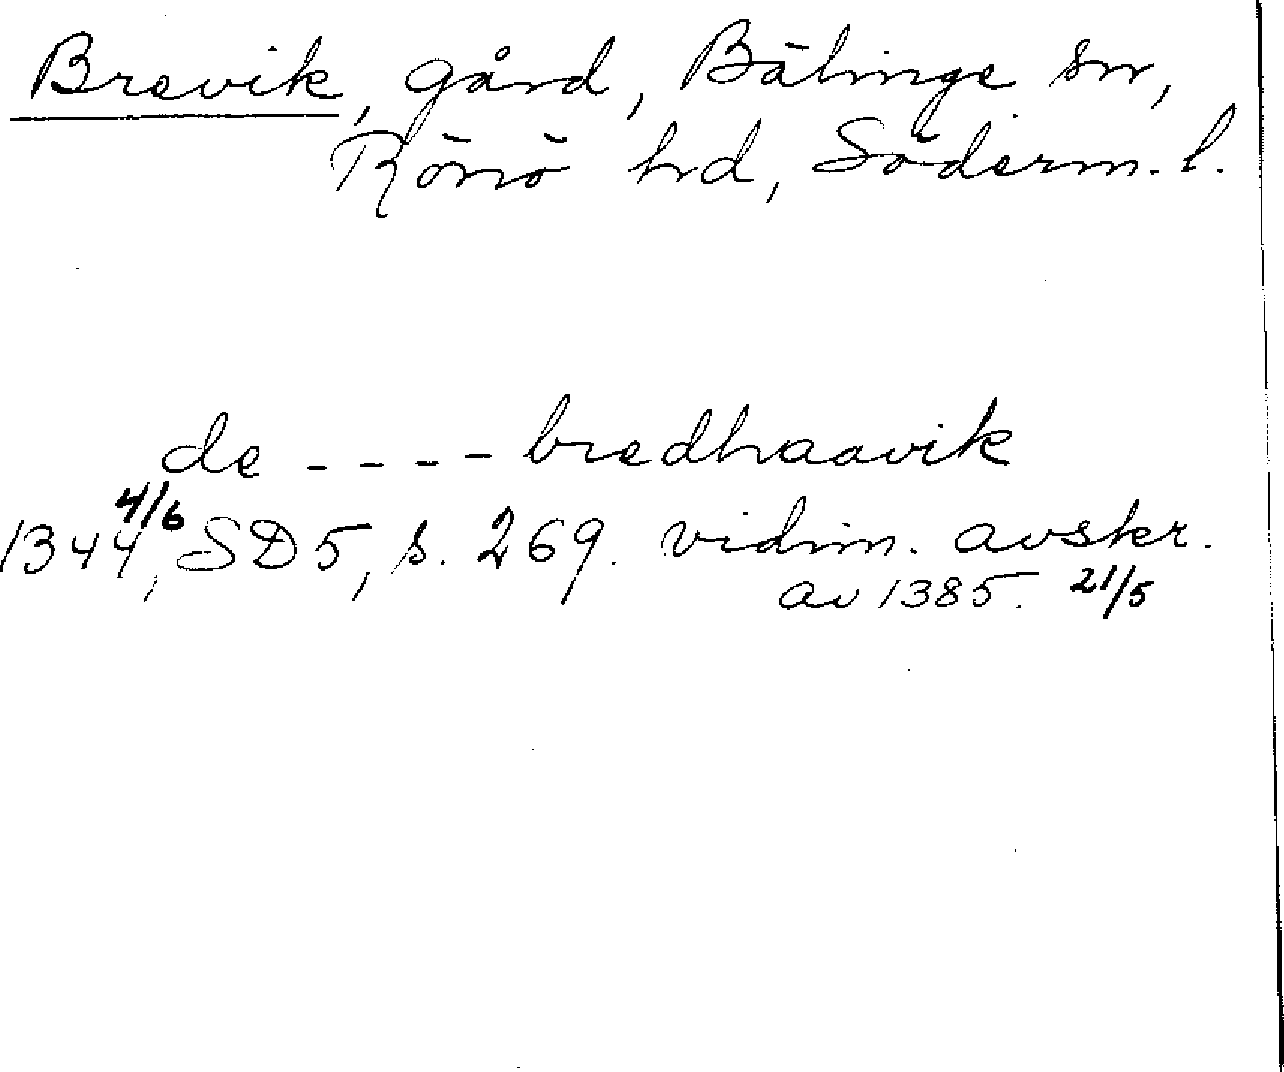 Brevik, gård, Bälinge sn,
Rönö hd, Söderm. l.
de ---- bredhaavik
1344 4/6, SD 5, s. 269. vidim. avskr.
av 1385. 21/5